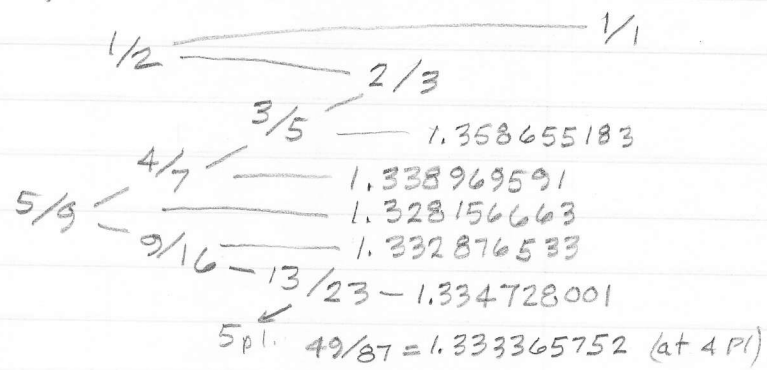 1/2 1/1
2/3
3/5 1.358655183
4/7 1.338969591
5/9 1.328156663
9/16 1.332876533
13/23 - 1.334728001
5pl. 49/87 = 1.333365752 (at 4 Pl)